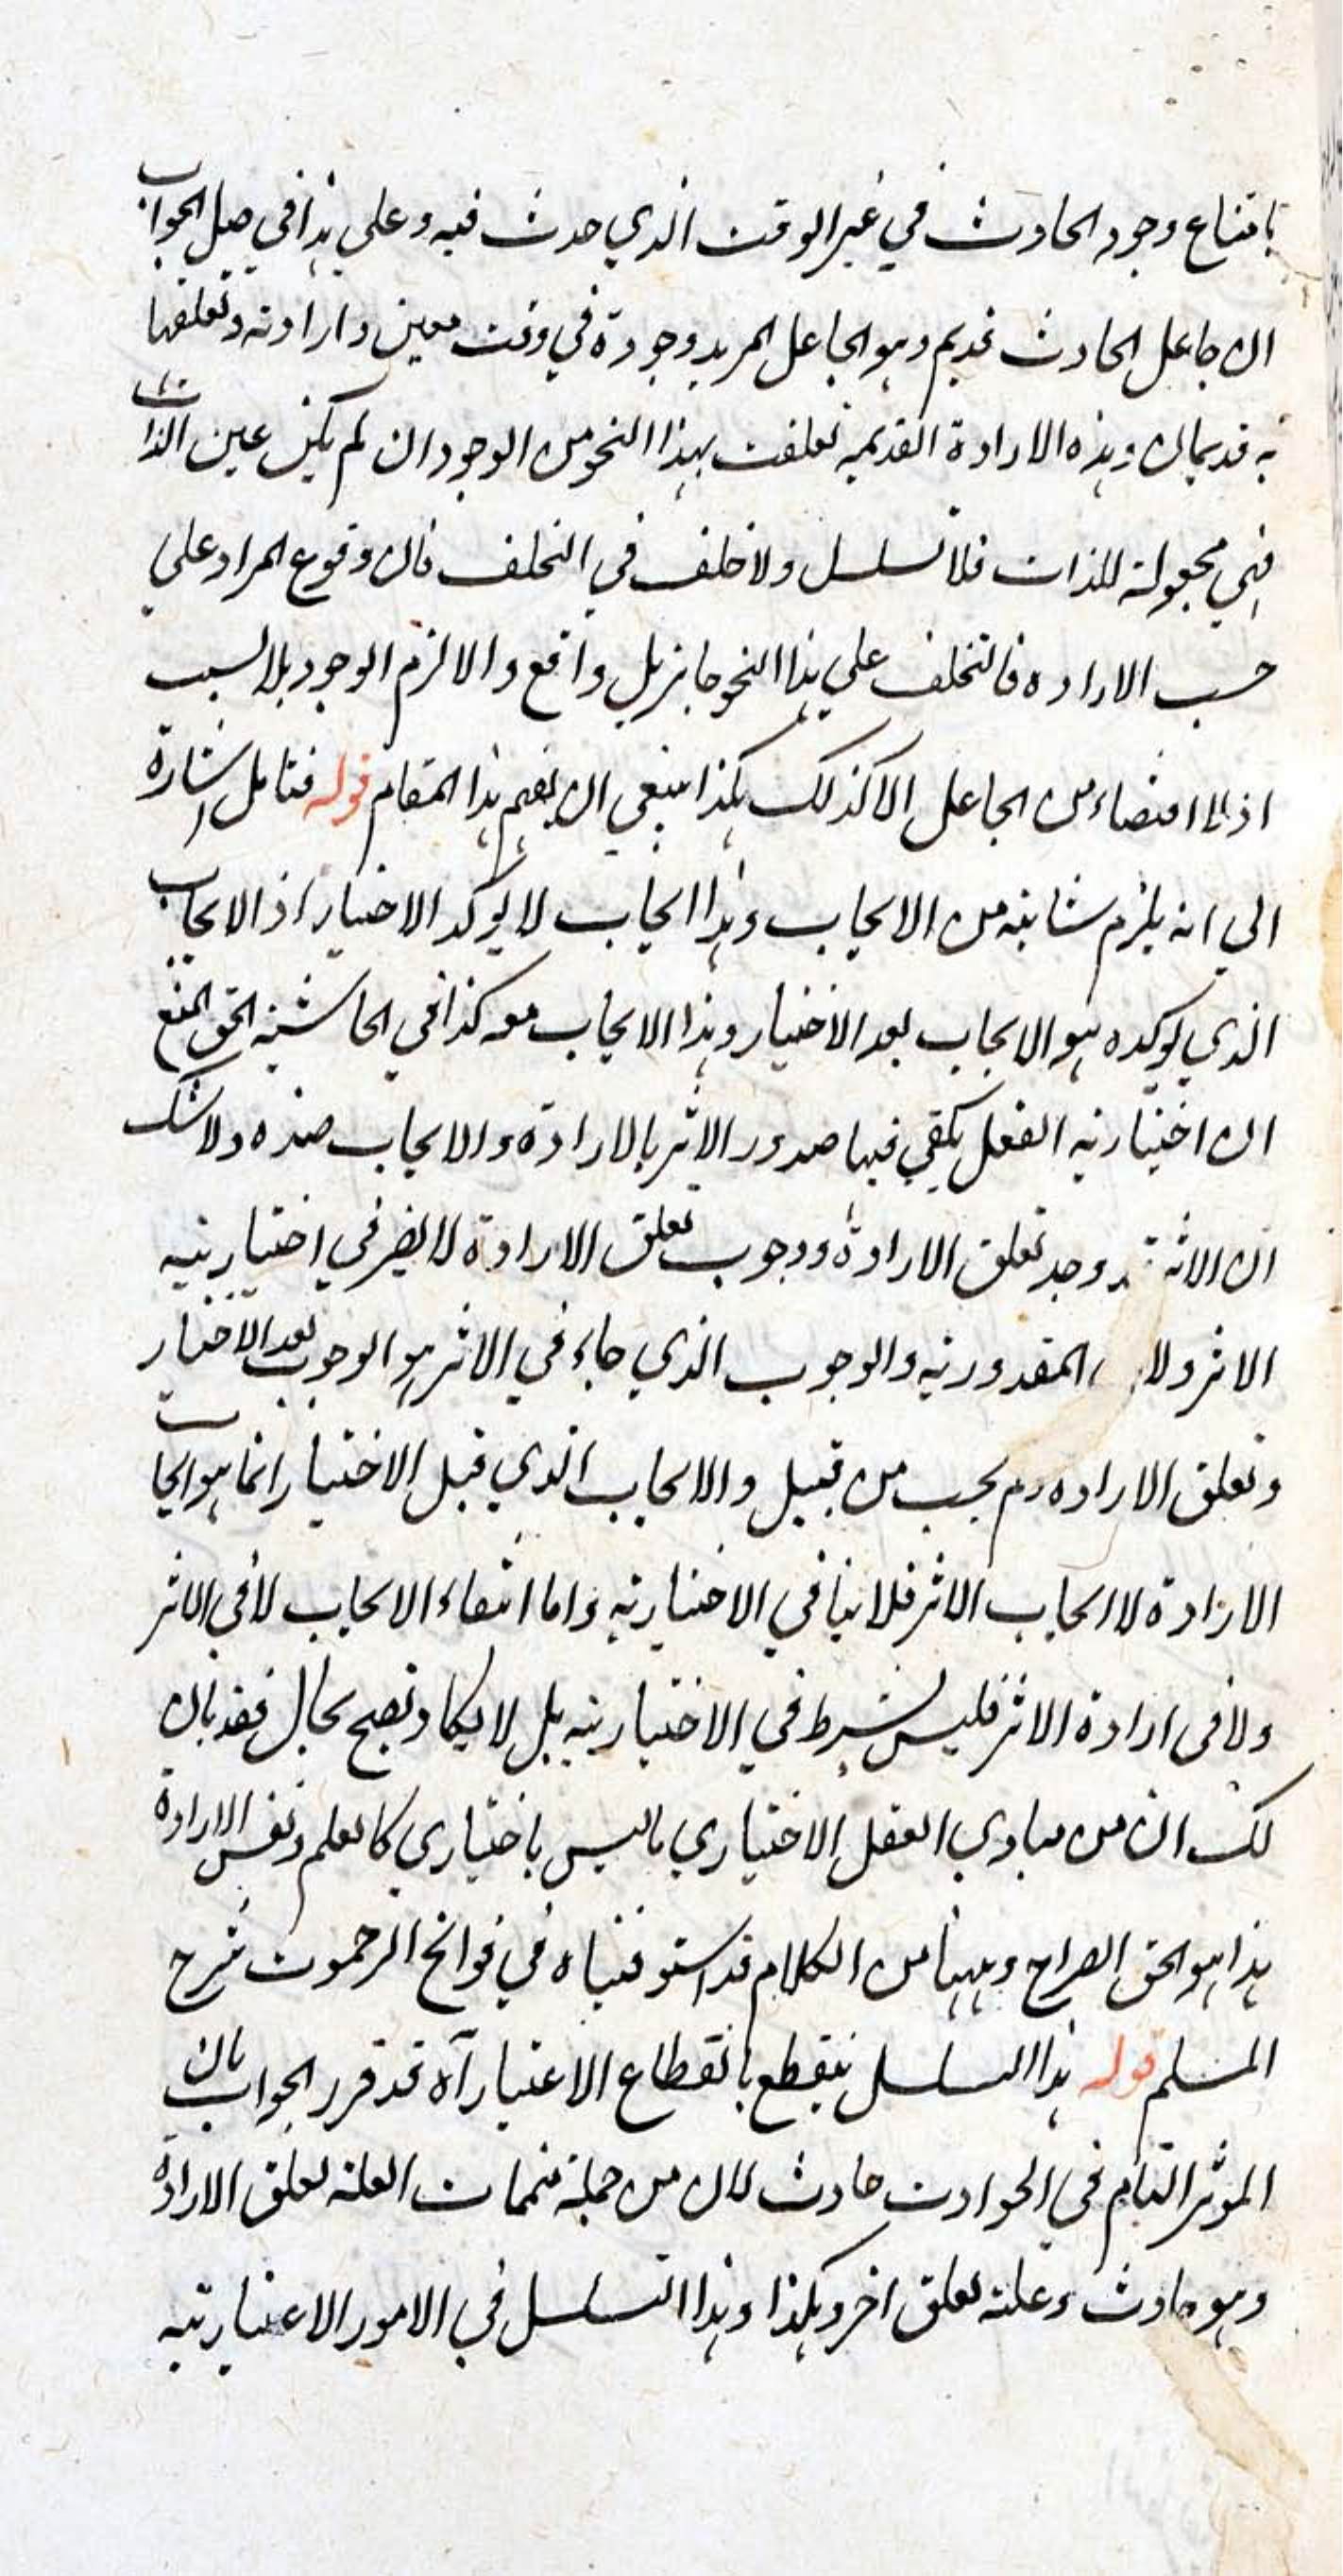 بامتناع وجود الحادث في غير الوقت الذي حدث فيه وعلى هذا في الجواب
ان جاعل الحادث قديم وهو الجاعل المريد وجوده في وقت معين وارادته وتعلقها
به قديمان وهذه الارادة القديمه تعلقت بهذا النحو من الوجود ان لم يكن عين الذات
فهي مجعولة للذات فلا تسلسل ولا خلف في التخلف فان وقوع المراد على
حسب الاراده فالتخلف على هذا النحو جايز بل واقع والا لزم الوجود بلا سبب
اذ لا اقتضاء من الجاعل الا كذلك هكذا ينبغي ان يفهم هذا المقام قوله فتامل اشارة
الى انه يلزم شائبه من الايجاب وهذا ايجاب لا يوكد الاختيار اذ الايجاب
الذي يوكده هو الايجاب بعد الاختيار وهذا الايجاب معه كذا في الحاشيه الحق المنع
ان اختياريه الفعل يكفي فيها صدور الاثر بالارادة والايجاب ضده ولا شك
ان الاثر وجد تعلق الارادة ووجوب تعلق الارادة لا يضر في اختياريه
الاثر ولا المقدوريه والوجوب الذي جاء في الاثر هو الوجوب بعد الاختيار
وتعلق الاراده لم يجب من قبيل والايجاب الذي قبل الاختيار انما هو ايجاب
الارادة لا ايجاب الاثر فلا ينافي الاختياريه واما انتفاء الايجاب لا في الاثر
ولا في ارادة الاثر فليس بشرط في الاختياريه بل لا يكاد تصح بحال فقد بان
لك ان من مبادي الفعل الاختياري ما ليس باختياري كالعلم ونفس الارادة
هذا هو الحق الصراح وههنا من الكلام قد استوفيناه في فواتح الرحموت شرح
المسلم قوله هذا التسلسل ينقطع بانقطاع الاعتبار آه قد قرر الجواب بان
الموثر التام في الحوادث حادث لان من جملة متممات العلة تعلق الارادة
وهو حادث وعلته تعلق اخر وهكذا وهذا التسلسل في الامور الاعتباريه